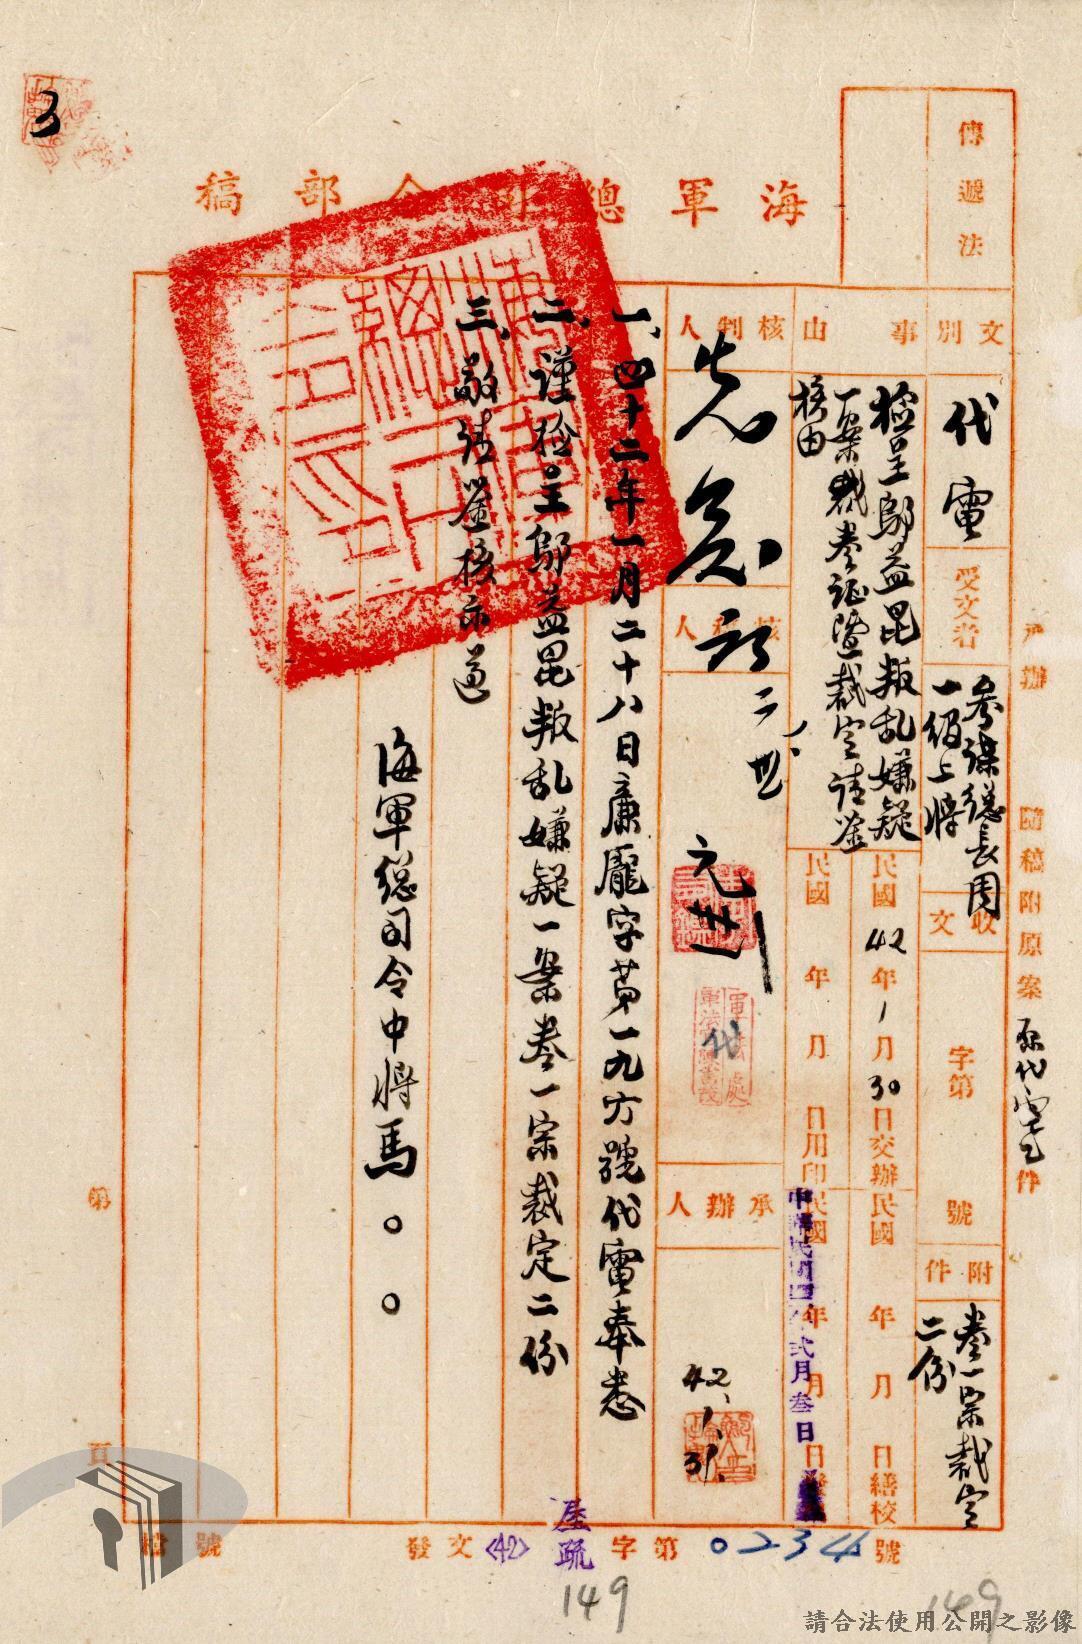 3
海軍總司令部稿
傳遞法
文別
代電
受文者
參謀總長周
一級上將
收文
字第
號
附件
卷一宗裁定
二份
承辦
隨稿附原案
原代電乙件
事
由
檢呈鄔益昆叛乱嫌疑
一案裁卷証暨裁定請鑒
核由
民國42年1月30日交辦
民國 年 月 日繕校
民國 年 月 日用印
民國 年 月 日
中華民國四 年弍月叁日
核判人
核
人
承辦人
二
元
代
42.1.31.
一、四十二年一月二十八日廉龐字第一九六號代電奉悉
二、謹檢呈鄔益昆叛乱嫌疑一案卷一宗裁定二份
三、敬請鑒核示遵
海軍總司令中將馬○○
第
頁
發文
(42)
字第
0234
號
檔
號
149
149
請合法使用公開之影像